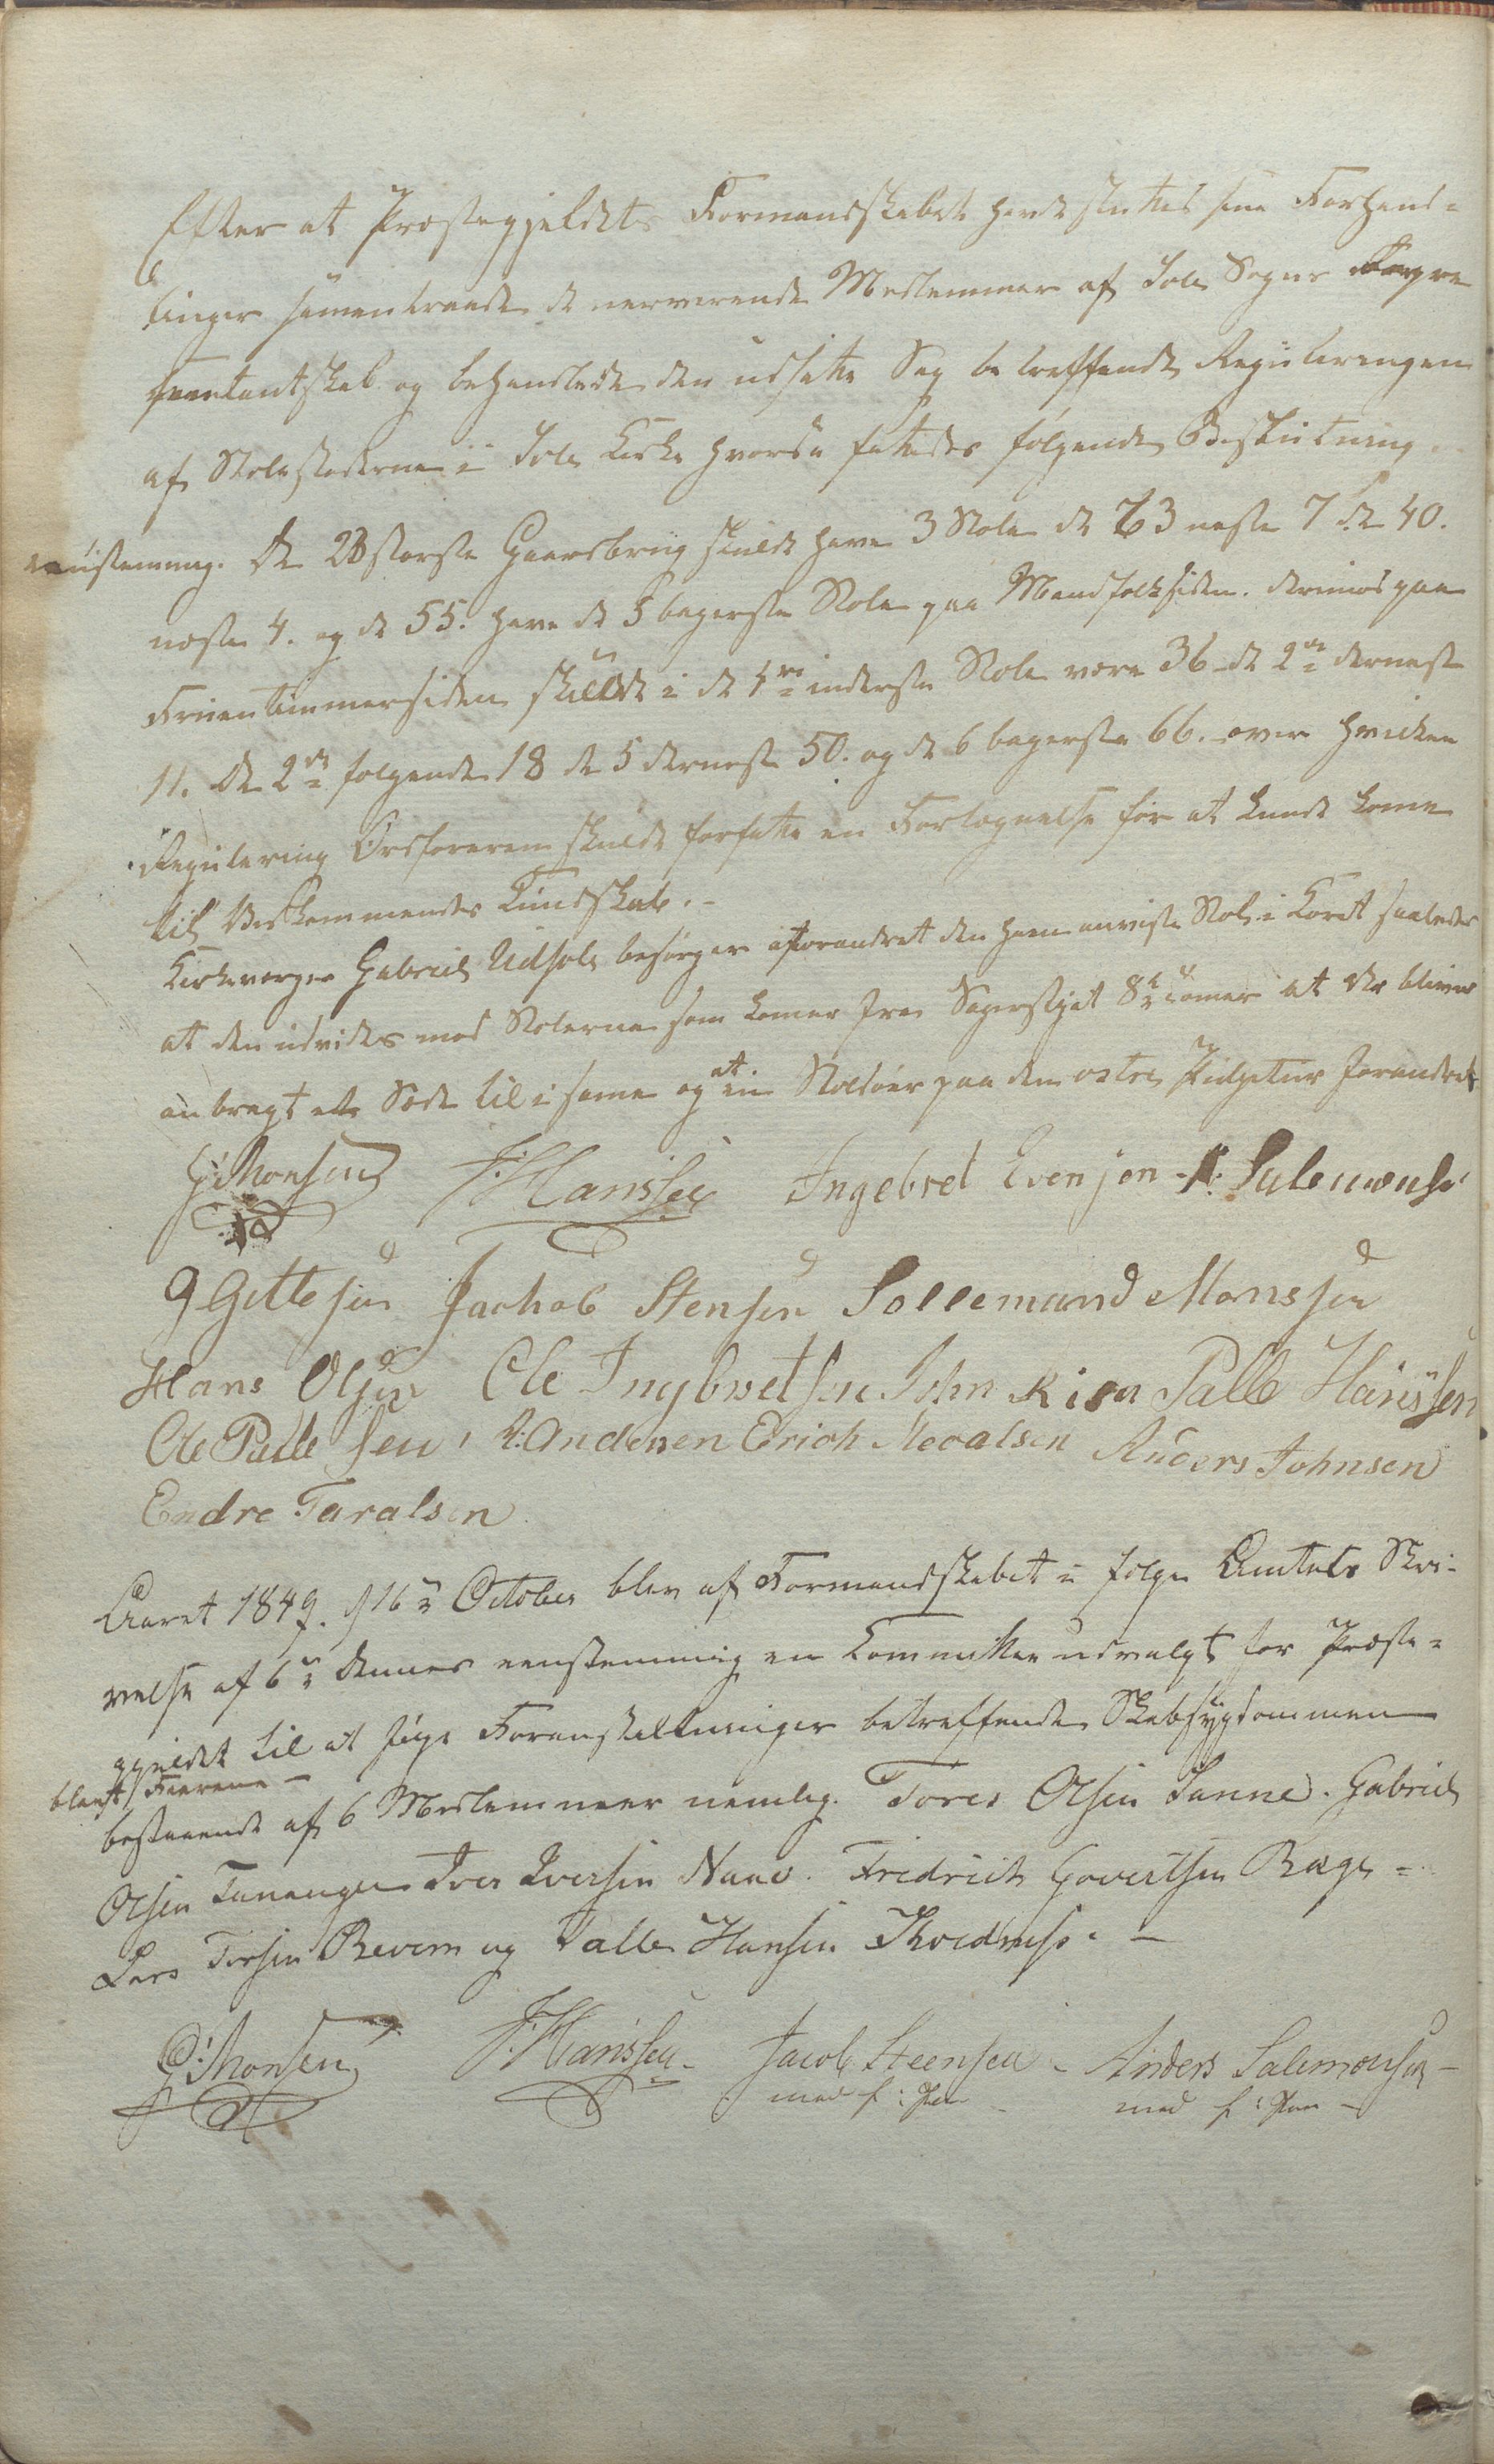 Efter at Præstegjeldets Formandskabet havde sluttet sine Forhand-
linger sammentraadte de nerværende Medlemmer af Sole Sogns Repre
sentantskab og behandlede den udsatte Sag betreffende Reguleringen
af Stolestederne i Sole Kirke hvorda fatedes følgende Beslutning
eenstemmig. De 28 største Gaardbrug skulde have 3 Stole de 63 neste 7 de 40.
neste 4. og de 55. have de 5 bagerste Stole paa Mandfolksiden. derimod paa
Fruentimmersiden skulde i de inderste Stole være 36 de 2de dernest
11. de 2de følgende 18 de 5 dernest 50. og de 6 bagerste 66. over hvilken
Regulering Ordføreren skulde forfatte en Fortegnelse for at kunde kome
til Vedkommendes Kundskab.-
Kirkeværger Gabriel Udsole besørger forandret den ham anviste Stol i Koret saaledes
at den udvides mod Stolerne som komer fra at der bliver
anbragt et Sæde til i same og at en Stoldør paa den østre forandret
G: Monsen J: Hanssen Ingebret Evensen A: Salemonsen
G Gittesen Jachob Stensen Sollemand Monssen
Hans Olsen Ole Ingbretsen John Risa Palle Hansen
Ole Pallesen A: Andersen Erich Anders Johnsen
Endre Taralsen
Aaret 1849. d 16de October blev af Formandskabet i følge Amtets Skri-
velse af 6te dennes eenstemmig en Committee udvalgt for Præste-
gjeldet til at føie Foranstaltninger betreffende Skabsygdommen
blandt Faarene -
bestaaende af 6 Medlemmer nemlig. Tores Olsen Sanne. Gabriel
Olsen Tananger Iver Iversen Fredrich Govertsen Rage -
Lars Torsen Revem og Palle Hansen -
G: Monsen J: Hanssen - Jacob Steensen - Anders Salemonsen -
med f: Pen - med f: Pen -